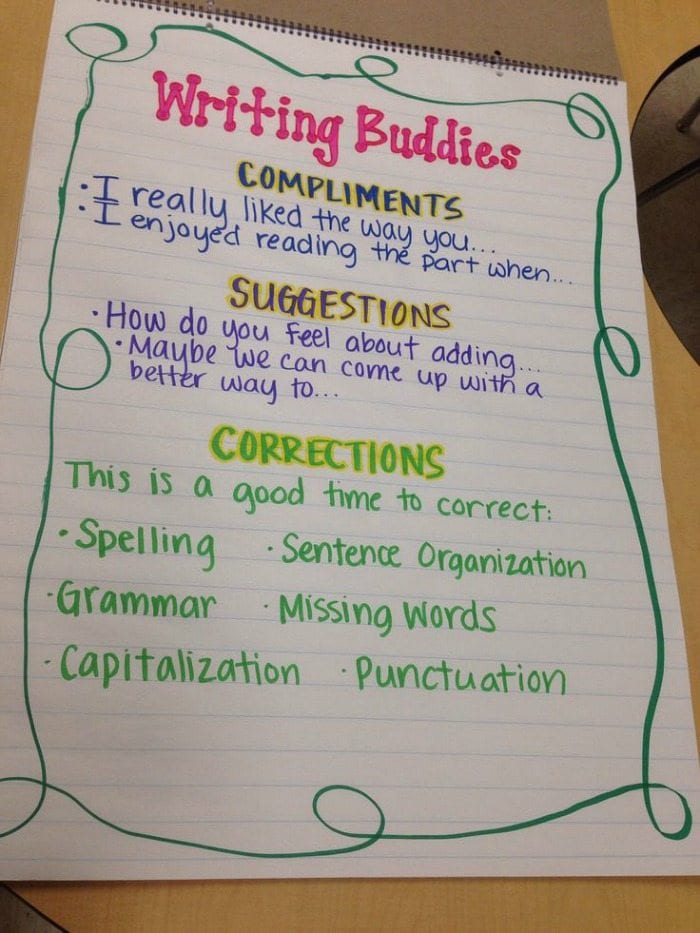 Writing Buddies
COMPLIMENTS
• I really liked the way you...
• I enjoyed reading the part when...
SUGGESTIONS
• How do you feel about adding...
• Maybe we can come up with a
better way to...
CORRECTIONS
This is a good time to correct:
• Spelling • Sentence Organization
• Grammar • Missing Words
• Capitalization • Punctuation